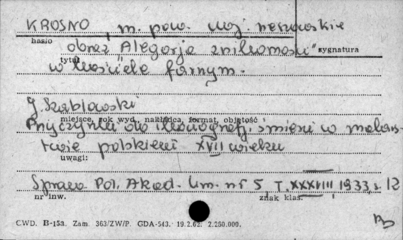 KROSNO, m. pow. woj. rzeszowskie
hasło
obraz "Alegorja znikomości"
sygnatura
tytuł
w kościele farnym.
J. Szablowski
miejsce, rok wyd., nakładca, format, objętość
Przyczynki do ikonografji śmierci w malars-
twie polskiem XVII wieku
uwagi:
Prace Pol. Akad. Um. nr 5 T. XXXVIII 1933 s. 12
nr inw.
znak klas.
CWD. B-153. Zam. 363/ZW/P. GDA-543. 19.2.62. 2.250.000.